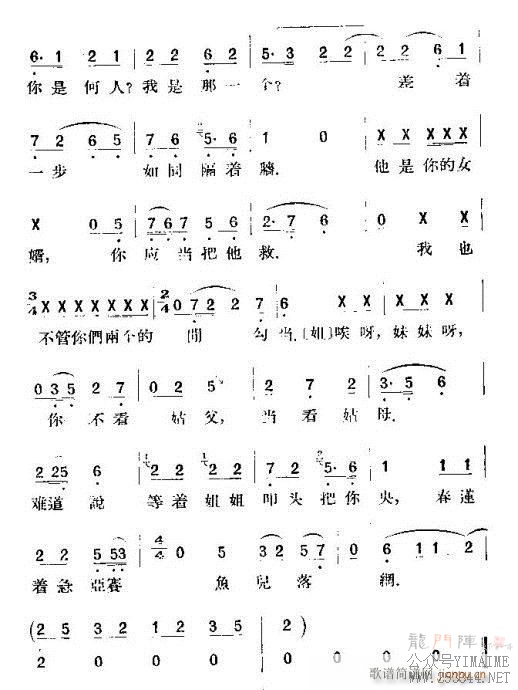 6· 1 2 1 2 6 2 5·3 2 2 2 2 6 1
你是何人?我是那一个? 差着
7 2 6 5 7 6 7 2 5·6 1 0 X X X X X
一步 如同隔着牆. 他是你的女
X 0 5 5 7 6 7 5 6 2·7 6 0 X X
婿, 你应当把他救. 我也
3/4 X X X X X X X 2/4 0 7 2 2 7 6 X X X X X
不管你們兩个的 間 勾当.〔姐〕唉呀,妹妹呀,
0 3 5 2 7 7 2 7 6 2 7 2 3·5 6
你不看姑父, 当看姑母.
2 2 5 6 2 2 2 2 7 2 5· 6 1 2 3 1
难道說 等着姐姐叩头把你央,春蓮
2 2 5 5 3 4/4 0 5 3 2 3 5 7 0 6 1 1 2
着急亞賽 魚兒落網.
(2 5 3 2 1 2 3 2 1 2· 5 5 5 2
2 0 0 0 0 0 0 0 2
龍門陣
公众号YIMAIME
歌谱简谱网